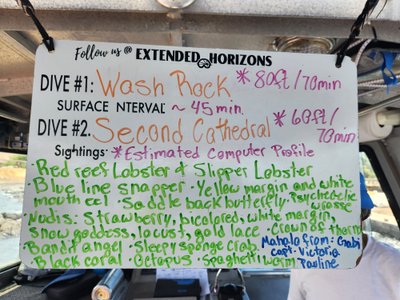 Follow us @ EXTENDED HORIZONS
DIVE #1: Wash Rock *80ft/70min
SURFACE NTERVAL ~45min
DIVE #2: Second Cathedral *60ft/70min
Sightings: *Estimated Computer Profile
• Red reef Lobster & Slipper Lobster
• Blue line snapper • Yellow margin and white
mouth eel • Saddle back butterfly • Psychedelic wrasse
Nudis: Strawberry, bicolored, white margin,
snow goddess, locust, gold lace • Crown of thorns
• Bandit angel • Sleepy sponge crab
• Black coral • Octopus • Spaghetti worm
Mahalo from: Gabi
Capt. Victoria
Pauline